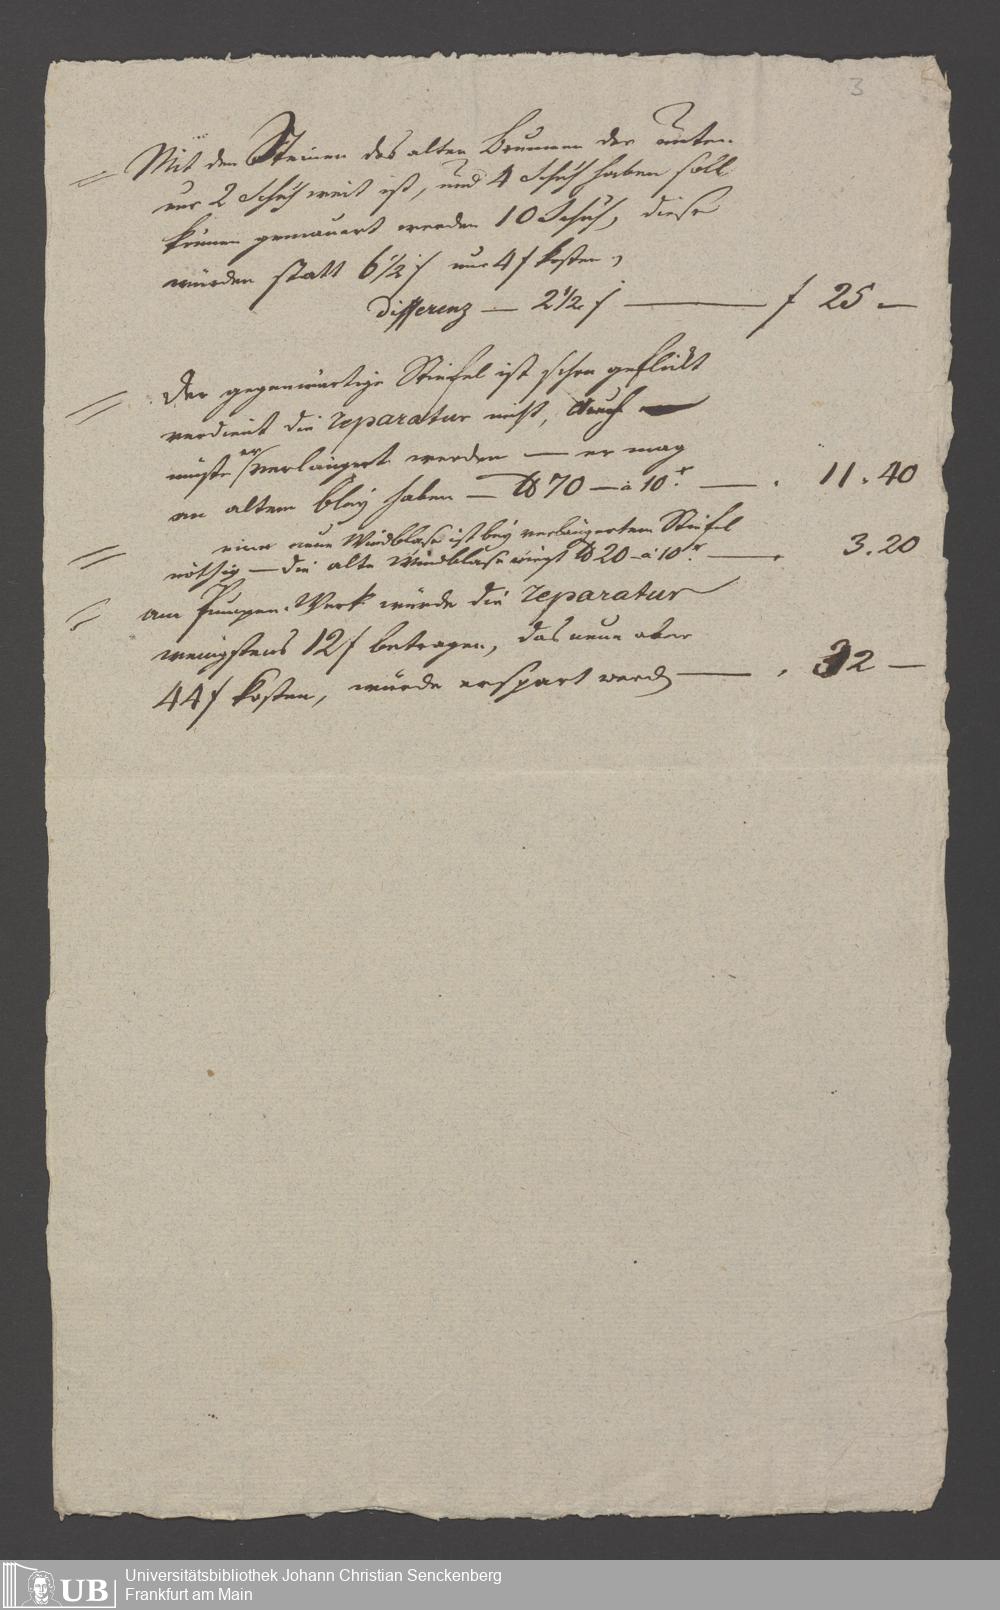 3
Mit den Steinen des alten Brunnen der unten
nur 2 Schuh weit ist, und 4 Schuh haben soll
können gemauert werden 10 Schuh, diese
würden statt 6 1/2 f nur 4 f kosten,
Differenz — 2 1/2 f — f 25 —
Der gegenwärtige Stiefel ist schon geflickt
verdient die reparatur nicht, auch
müste er verlängert werden — er mag
an altem bley haben — ℔ 70 — à 10 xr — . 11.40
eine neue Windblase ist bey verlängertem Stiefel
nöthig — die alte Windblase wiegt ℔ 20 à 10 xr — . 3.20
am Pumpen-Werk würde die reparatur
wenigstens 12 f betragen, das neue aber
44 f kosten, würde erspart werden — . 32 —
UB
Universitätsbibliothek Johann Christian Senckenberg
Frankfurt am Main